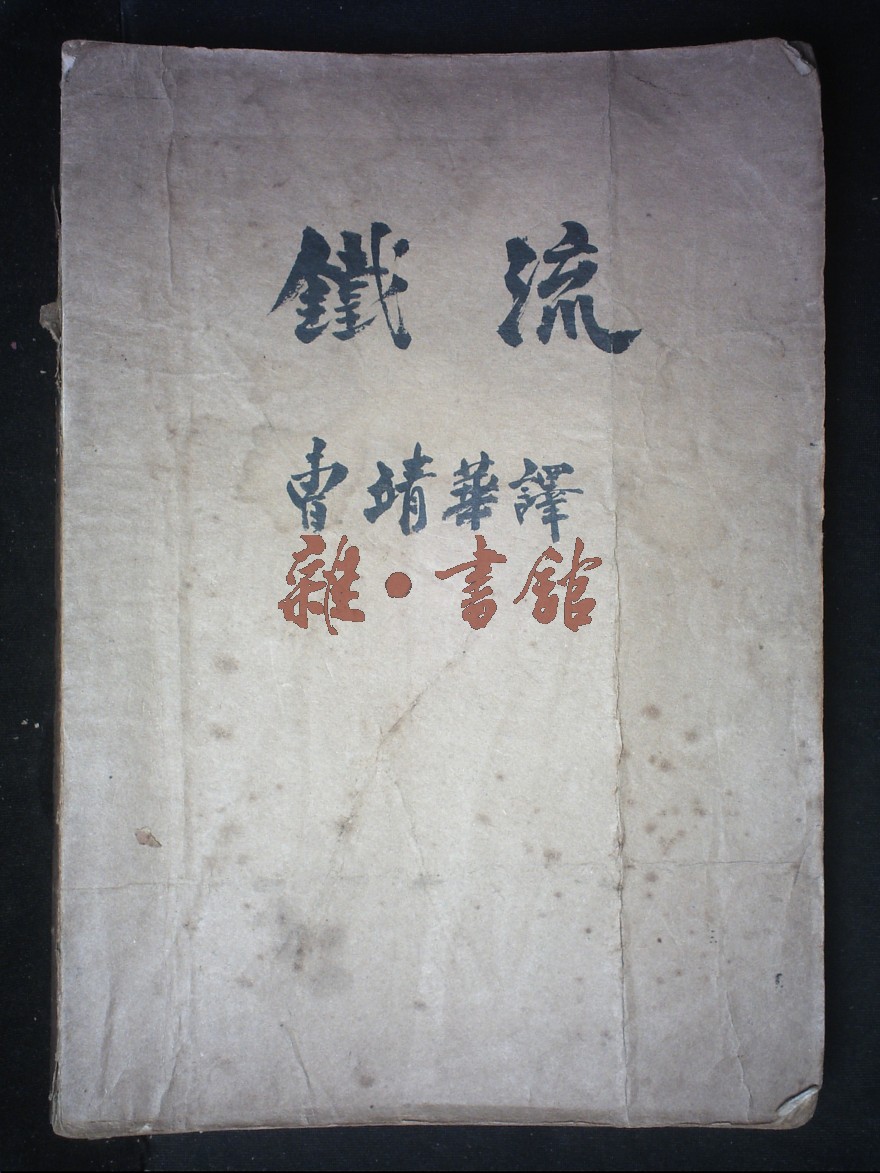 鐵流
曹靖華譯
雜·書館